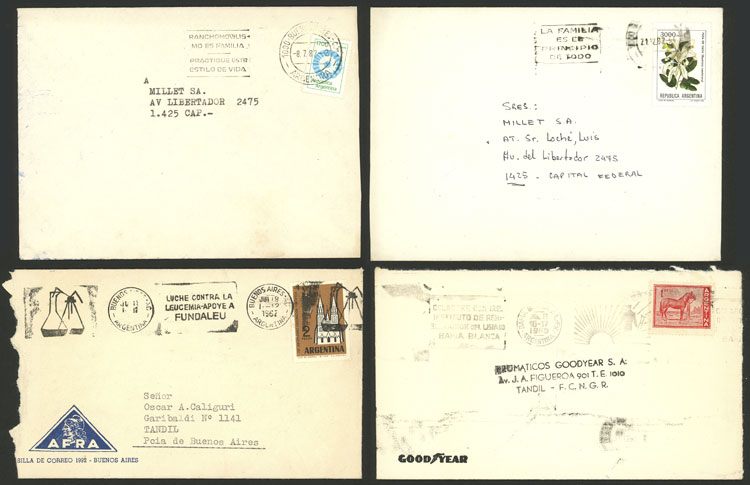 ES FAMILIA
ESTILO DE VIDA
8.7.82
A
MILLET SA.
AV LIBERTADOR 2475
1.425 CAP.-
LA FAMILIA
ES EL
PRINCIPIO
DE TODO
3000
REPUBLICA ARGENTINA
SRES:
MILLET S.A.
AT. Sr. Loché, Luis
Av. del Libertador 2475
1425 - CAPITAL FEDERAL
BUENOS AIRES
ARGENTINA
LUCHE CONTRA LA
LEUCEMIA-APOYE A
FUNDALEU
BUENOS AIRES
JUN 19
1962
ARGENTINA
2
ARGENTINA
Señor
Oscar A.Caliguri
Garibaldi Nº 1141
TANDIL
Pcia de Buenos Aires
AFRA
SILLA DE CORREO 1992 - BUENOS AIRES
BAHIA BLANCA
ARGENTINA
NEUMATICOS GOODYEAR S. A:
Av. J. A. FIGUEROA 901 T. E. 1010
TANDIL - F. C. N. G. R.
GOODYEAR